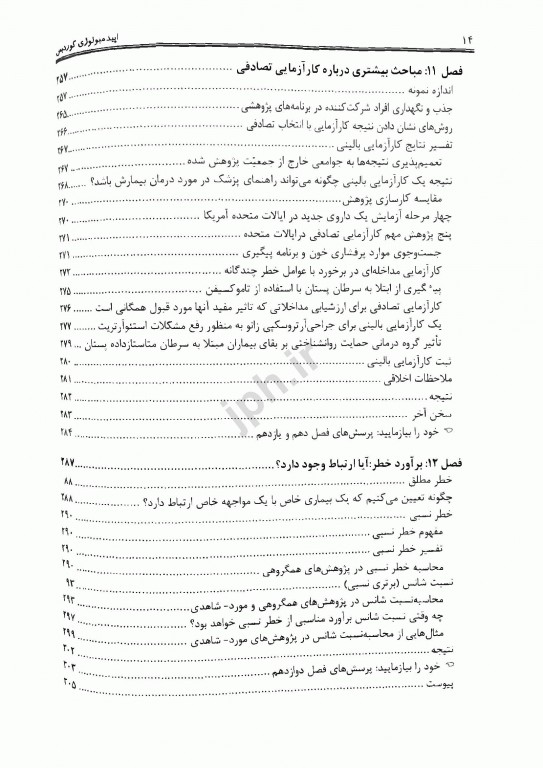 ۱۴ اپیدمیولوژی گوردیس
فصل ۱۱: مباحث بیشتری درباره کارآزمایی تصادفی ۲۵۷
اندازه نمونه ۲۵۷
جذب و نگهداری افراد شرکت‌کننده در برنامه‌های پژوهشی ۲۶۵
روش‌های نشان دادن نتیجه کارآزمایی با انتخاب تصادفی ۲۶۶
تفسیر نتایج کارآزمایی بالینی ۲۶۷
تعمیم‌پذیری نتیجه‌ها به جوامعی خارج از جمعیّت پژوهش شده ۲۶۷
نتیجه یک کارآزمایی بالینی چگونه می‌تواند راهنمای پزشک در مورد درمان بیمارش باشد؟ ۲۶۸
مقایسه کارسازی پژوهش ۲۷۰
چهار مرحله آزمایش یک داروی جدید در ایالات متحده آمریکا ۲۷۰
پنج پژوهش مهم کارآزمایی تصادفی درایالات متحده ۲۷۱
جست‌وجوی موارد پرفشاری خون و برنامه پیگیری ۲۷۱
کارآزمایی مداخله‌ای در برخورد با عوامل خطر چندگانه ۲۷۲
گیری از ابتلا به سرطان پستان با استفاده از تاموکسیفن ۲۷۵
کارآزمایی تصادفی برای ارزشیابی مداخلاتی که تاثیر مفید آنها مورد قبول همگانی است ۲۷۶
یک کارآزمایی بالینی برای جراحی‌آرتروسکپی زانو به منظور رفع مشکلات استئوآرتریت ۲۷۷
تأثیر گروه درمانی حمایت روانشناختی بر بقای بیماران مبتلا به سرطان متاستازداده پستان ۲۷۹
ثبت کارآزمایی بالینی ۲۸۰
ملاحظات اخلاقی ۲۸۱
نتیجه ۲۸۲
سخن آخر ۲۸۳
خود را بیازمایید: پرسش‌های فصل دهم و یازدهم ۲۸۴
فصل ۱۲: برآورد خطر:آیا ارتباط وجود دارد؟ ۲۸۷
خطر مطلق ۸۸
چگونه تعیین می‌کنیم که یک بیماری خاص با یک مواجهه خاص ارتباط دارد؟ ۲۸۸
خطر نسبی ۲۹۰
مفهوم خطر نسبی ۲۹۰
تفسیر خطر نسبی ۲۹۰
محاسبه خطر نسبی در پژوهش‌های همگروهی ۲۹۰
نسبت شانس (برتری نسبی) ۹۳
محاسبه‌نسبت شانس در پژوهش‌های همگروهی و مورد- شاهدی ۲۹۳
چه وقتی نسبت شانس برآورد مناسبی از خطر نسبی خواهد بود؟ ۲۹۷
مثال‌هایی از محاسبه‌نسبت شانس در پژوهش‌های مورد- شاهدی ۲۹۹
نتیجه ۲۰۲
خود را بیازمایید: پرسش‌های فصل دوازدهم ۲۰۳
پیوست ۲۰۵
jph.ir